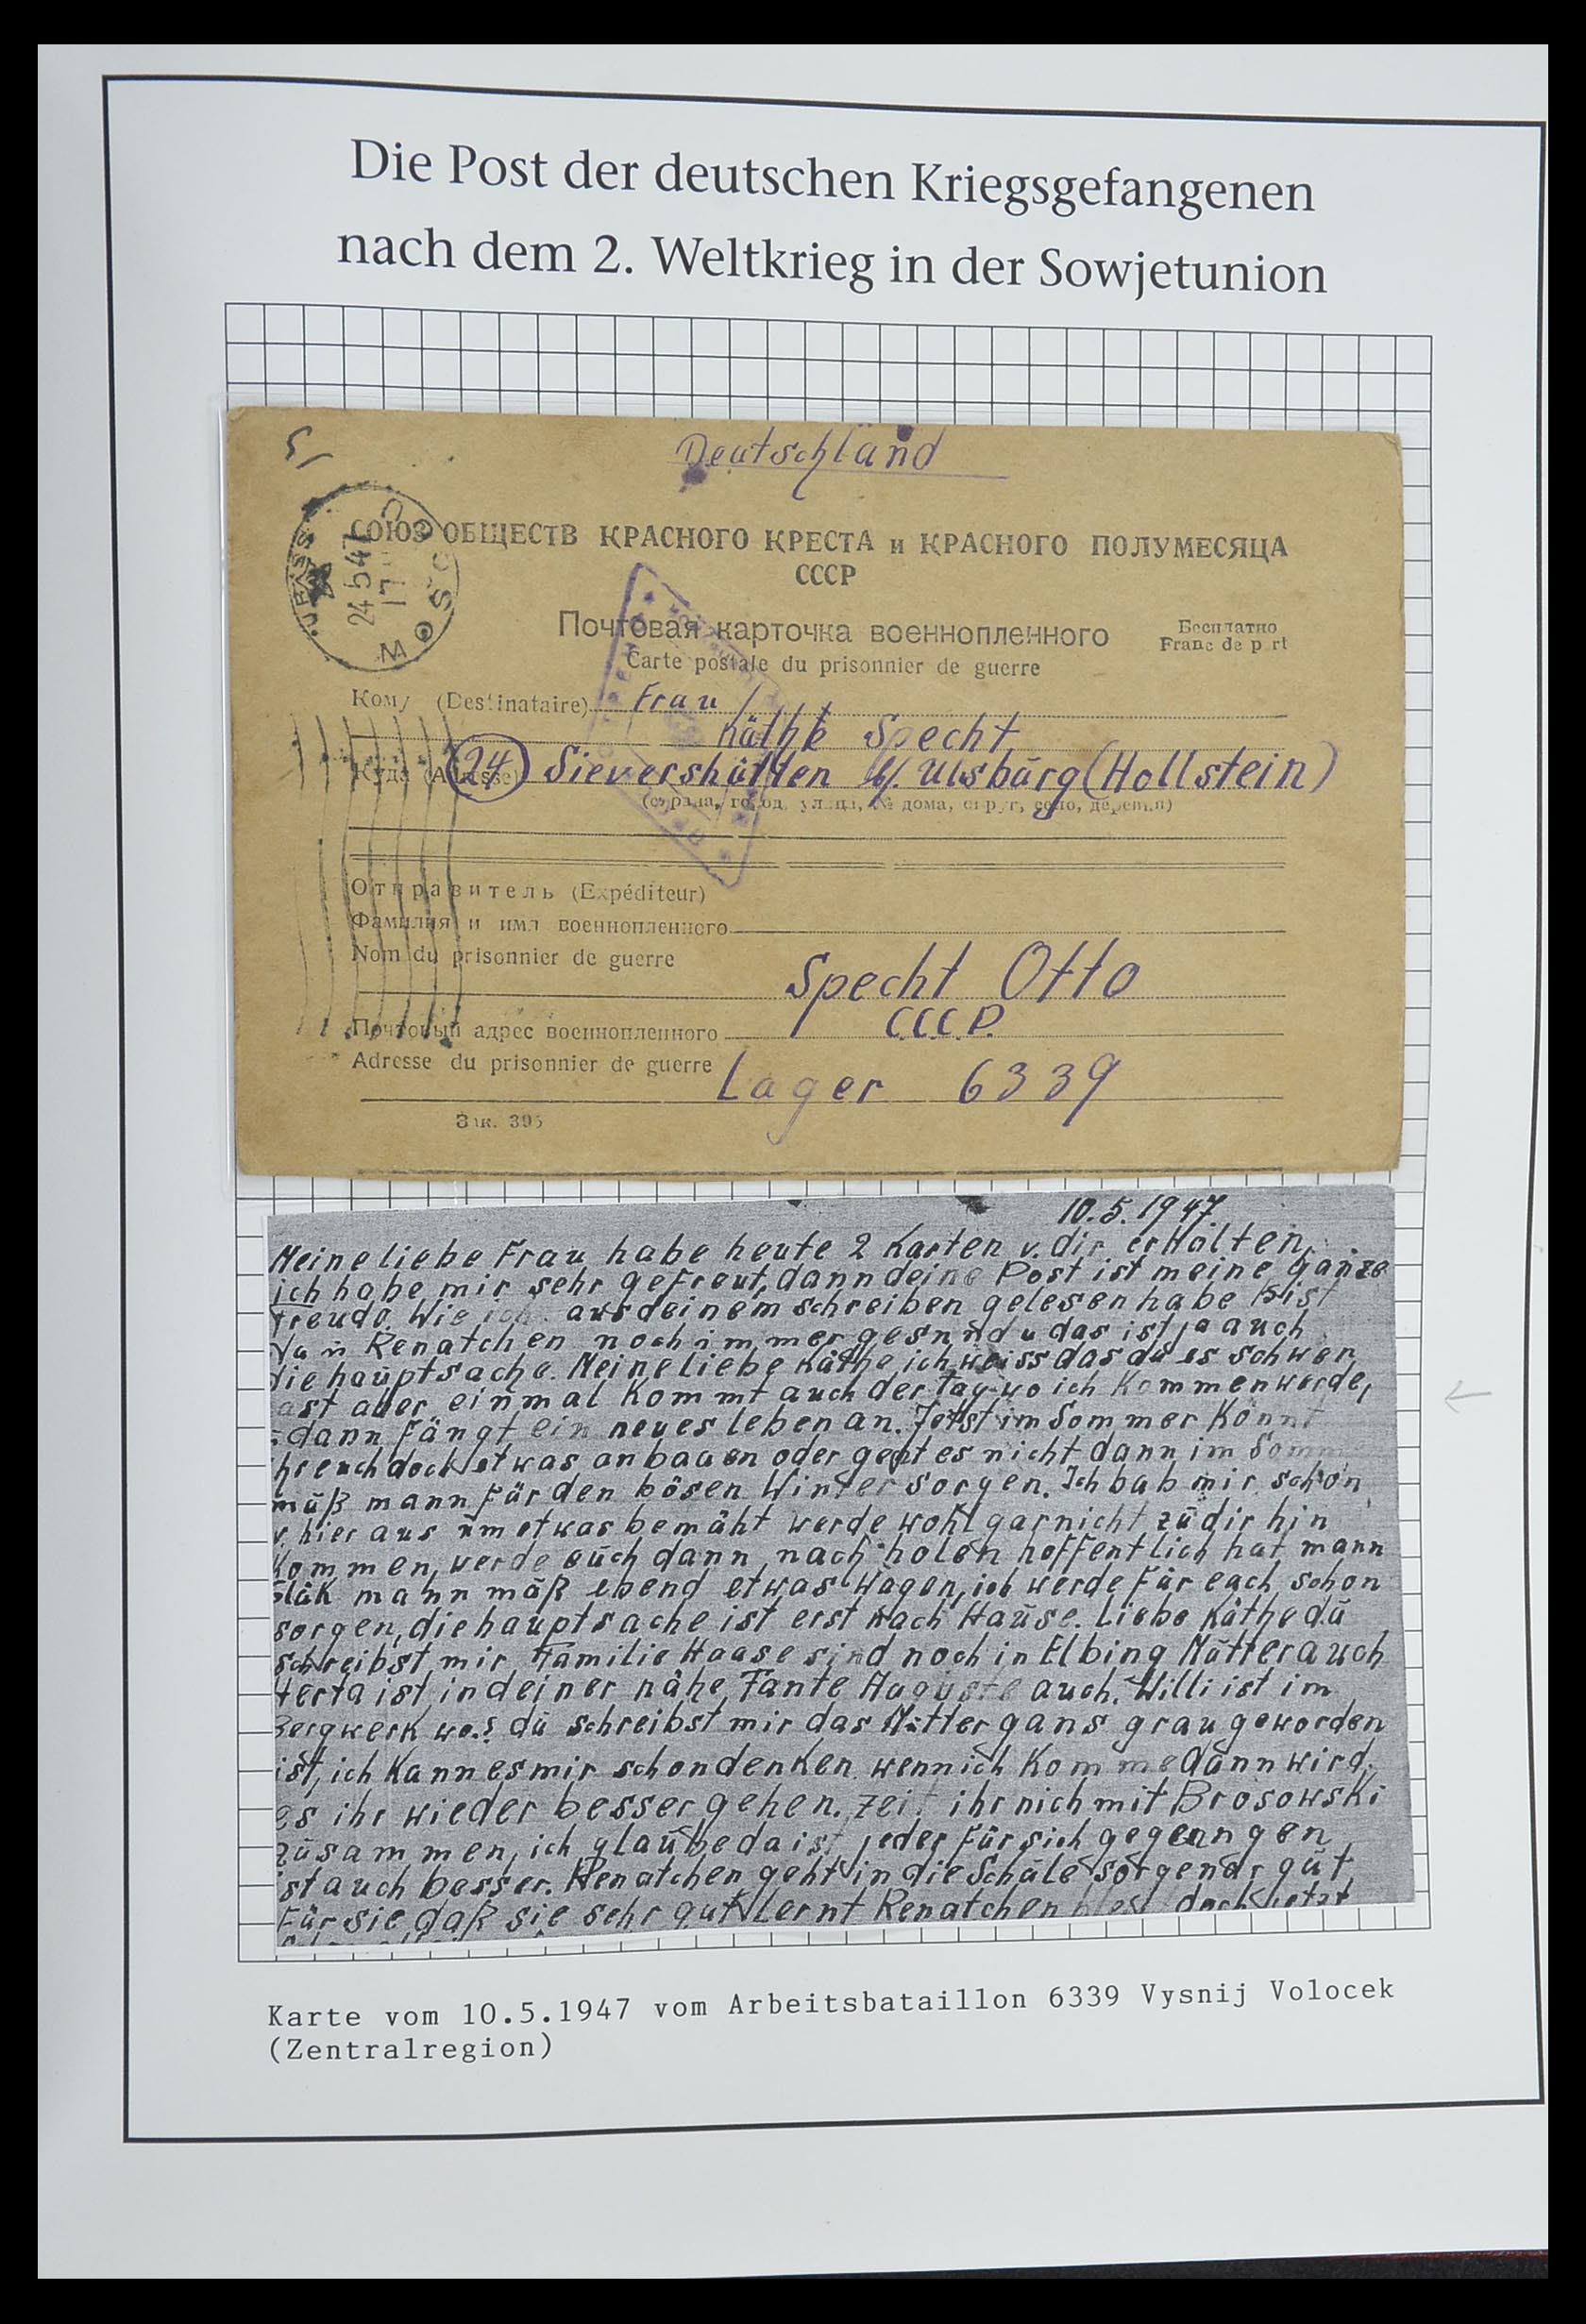 Die Post der deutschen Kriegsgefangenen
nach dem 2. Weltkrieg in der Sowjetunion
Deutschland
СОЮЗ ОБЩЕСТВ КРАСНОГО КРЕСТА и КРАСНОГО ПОЛУМЕСЯЦА
СССР
24 5 47
17
Почтовая карточка военнопленного
Бесплатно
Carte postale du prisonnier de guerre
Franc de p rt
Кому (Destinataire) Frau
Käthe Specht
Куда (Adresse) 24 Sievershütten b/. Ulsbürg (Hollstein)
(страна, город, улица, № дома, округ, село, деревня)
Отправитель (Expéditeur)
Фамилия и имя военнопленного
Nom du prisonnier de guerre
Specht Otto
Почтовый адрес военнопленного CCCP.
Adresse du prisonnier de guerre Lager 6339
Зак. 395
10.5.1947
Meine liebe Frau habe heute 2 Karten v. dir erhalten,
ich habe mir sehr gefreut, dann deine Post ist meine ganze
Freude. Wie ich aus deinem schreiben gelesen habe bist
du u Renatchen noch immer gesund u das ist ja auch
die hauptsache. Meine liebe Käthe ich weiss das du es schwer
ast aber einmal kommt auch der tag wo ich kommen werde,
dann fängt ein neues leben an. Jetst im Sommer könnt
ihr euch doch etwas anbauen oder geht es nicht dann im Somm
müß mann für den bösen Winter sorgen. Ich hab mir schon
v. hier aus üm etwas bemüht werde wohl garnicht zü dir hin
kommen, werde eüch dann nach holen hoffentlich hat mann
Glük mann müß ebend etwas Wagen, ich werde für euch schon
sorgen, die hauptsache ist erst nach Haüse. Liebe Käthe dü
schreibst mir Familie Haase sind noch in Elbing Mütter auch
Herta ist in deiner nähe Tante Auguste auch. Willi ist im
Bergwerk wo.? dü schreibst mir das Mütter gans grau geworden
ist, ich kann es mir schon denken wenn ich komme dann wird
es ihr wieder besser gehen. Zeit ihr nich mit Brosowski
züsammen, ich glaübe da ist jeder für sich gegangen
ist auch besser. Renatchen geht in die Schüle sorge güt
für sie daß sie sehr gut lernt Renatchen doch jetzt
Karte vom 10.5.1947 vom Arbeitsbataillon 6339 Vysnij Volocek
(Zentralregion)